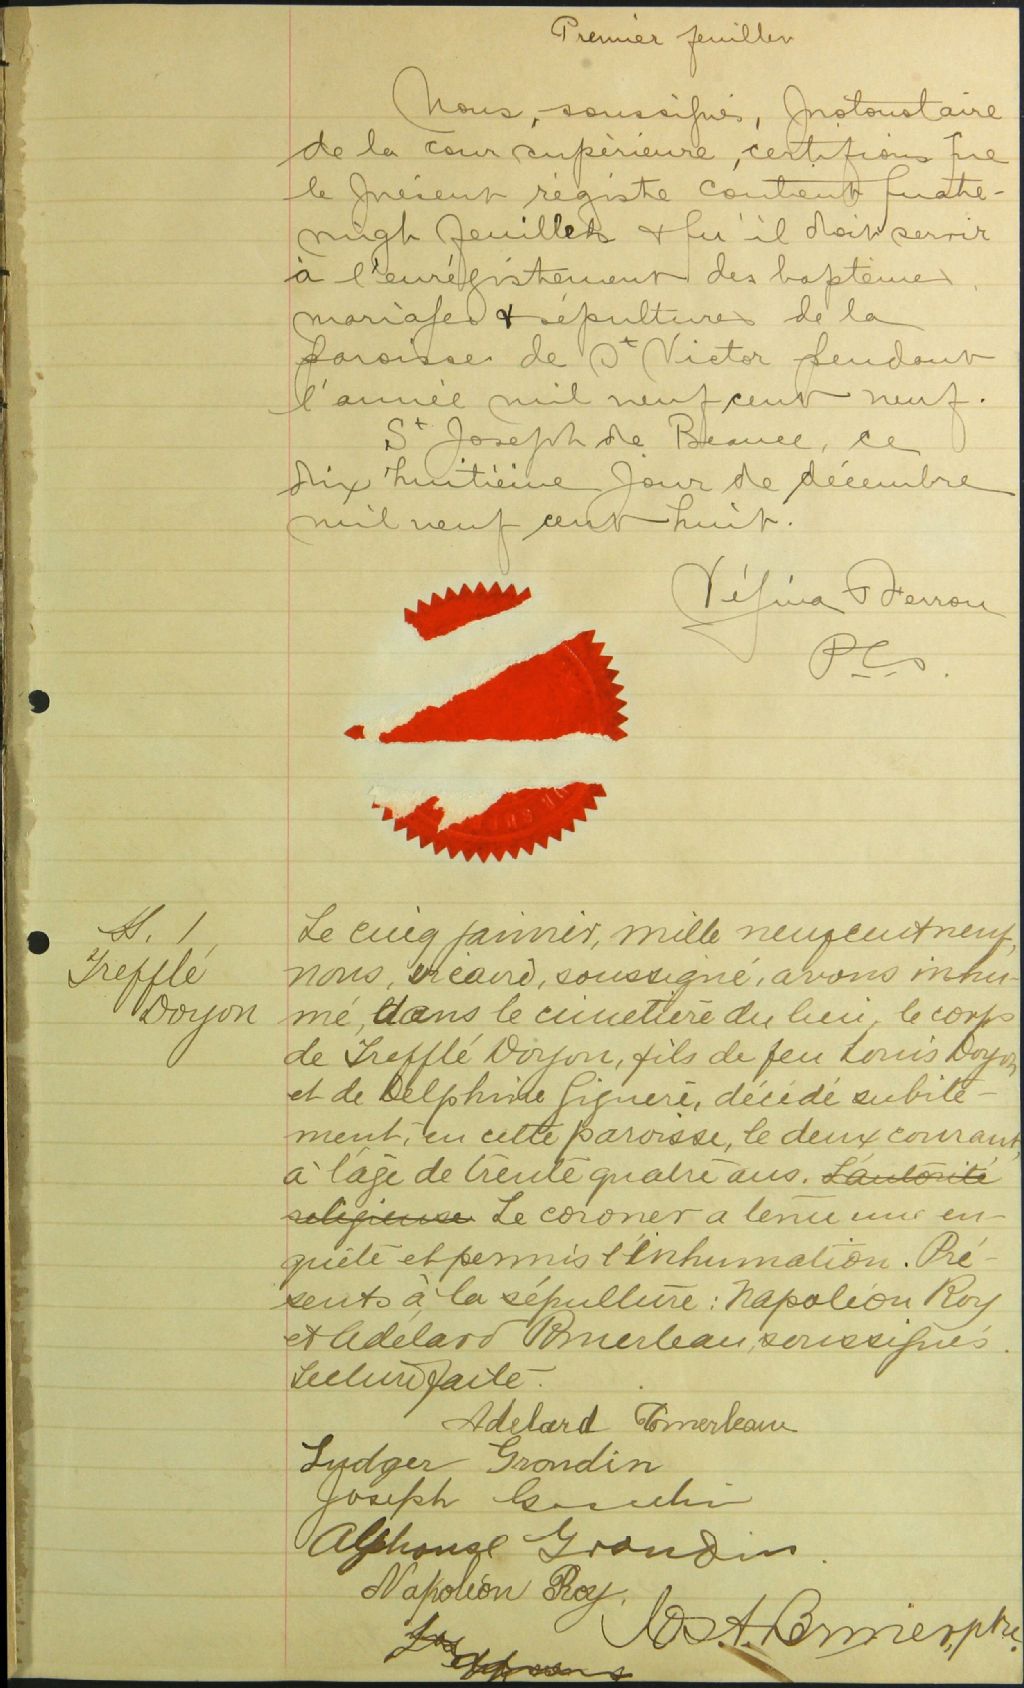 Premier feuillet
Nous, soussignés, Protonotaire
de la cour supérieure, certifions que
le présent régistre contient quatre-
vingt feuillets & qu'il doit servir
à l'enrégistrement des baptêmes,
mariages & sépultures de la
paroisse de St Victor pendant
l'année mil neuf cent neuf.
St Joseph de Beauce, ce
dix huitième jour de décembre
mil neuf cent huit.
Vézina
P.C.S.
S. 1
Trefflé
Doyon
Le cinq janvier, mille neuf cent neuf,
nous, vicaire, soussigné, avons inhu-
mé, dans le cimetière du lieu, le corps
de Trefflé Doyon, fils de feu Louis Doyon
et de Delphine Giguère, décédé subite-
ment, en cette paroisse, le deux courant,
à l'âge de trente quatre ans. L'autorité
religieuse Le coroner a tenu une en-
quête et permis l'inhumation. Pré-
sents à la sépulture : Napoléon Roy
et Adélard Pomerleau, soussignés.
Lecture faite.
Adelard Pomerleau
Ludger Grondin
Joseph
Alphonse Grondin.
Napoléon Roy.
Jos. A. Bernier, ptre.